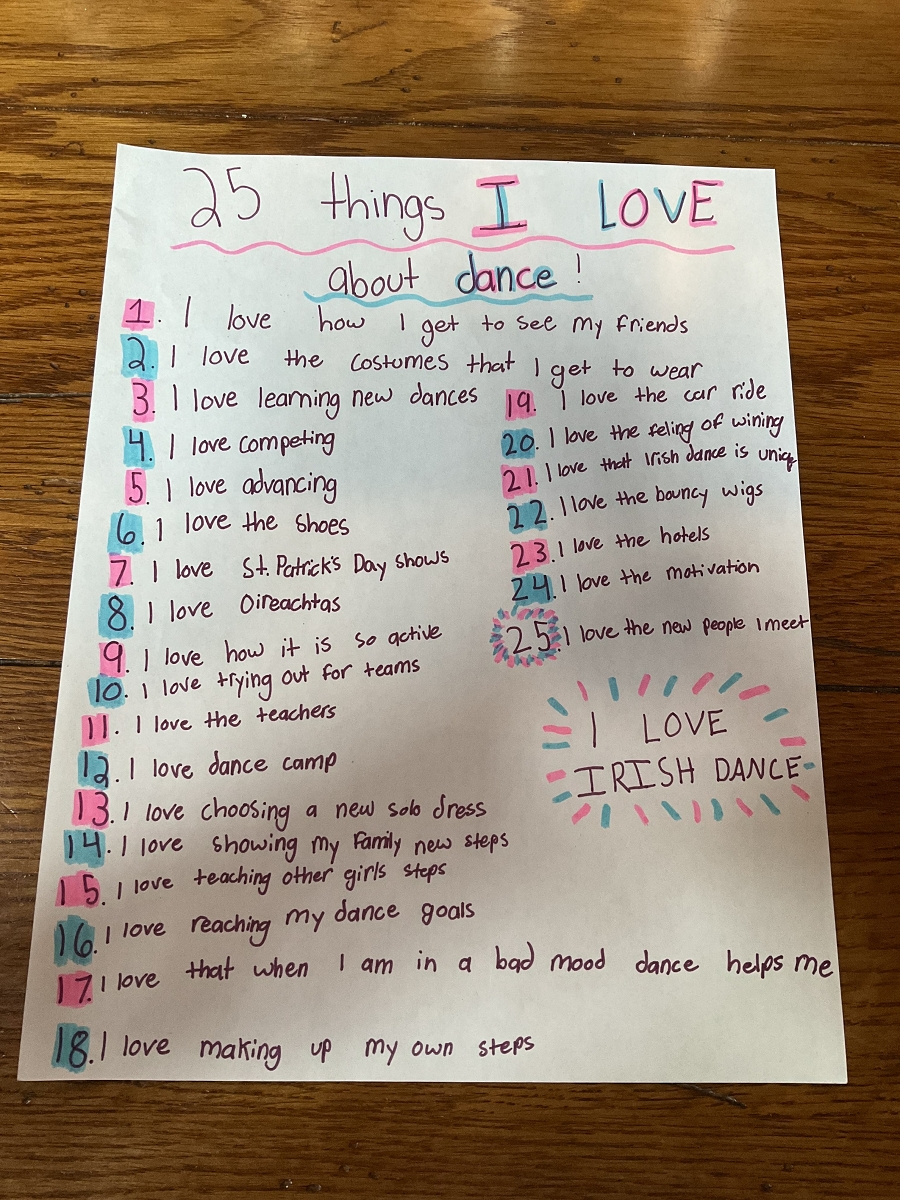 25 things I LOVE
about dance!
1. I love how I get to see my friends
2. I love the costumes that I get to wear
3. I love learning new dances
4. I love competing
5. I love advancing
6. I love the shoes
7. I love St. Patrick's Day shows
8. I love Oireachtas
9. I love how it is so active
10. I love trying out for teams
11. I love the teachers
12. I love dance camp
13. I love choosing a new solo dress
14. I love showing my family new steps
15. I love teaching other girls steps
16. I love reaching my dance goals
17. I love that when I am in a bad mood dance helps me
18. I love making up my own steps
19. I love the car ride
20. I love the feling of wining
21. I love that Irish dance is uniq
22. I love the bouncy wigs
23. I love the hotels
24. I love the motivation
25. I love the new people I meet
I LOVE
IRISH DANCE